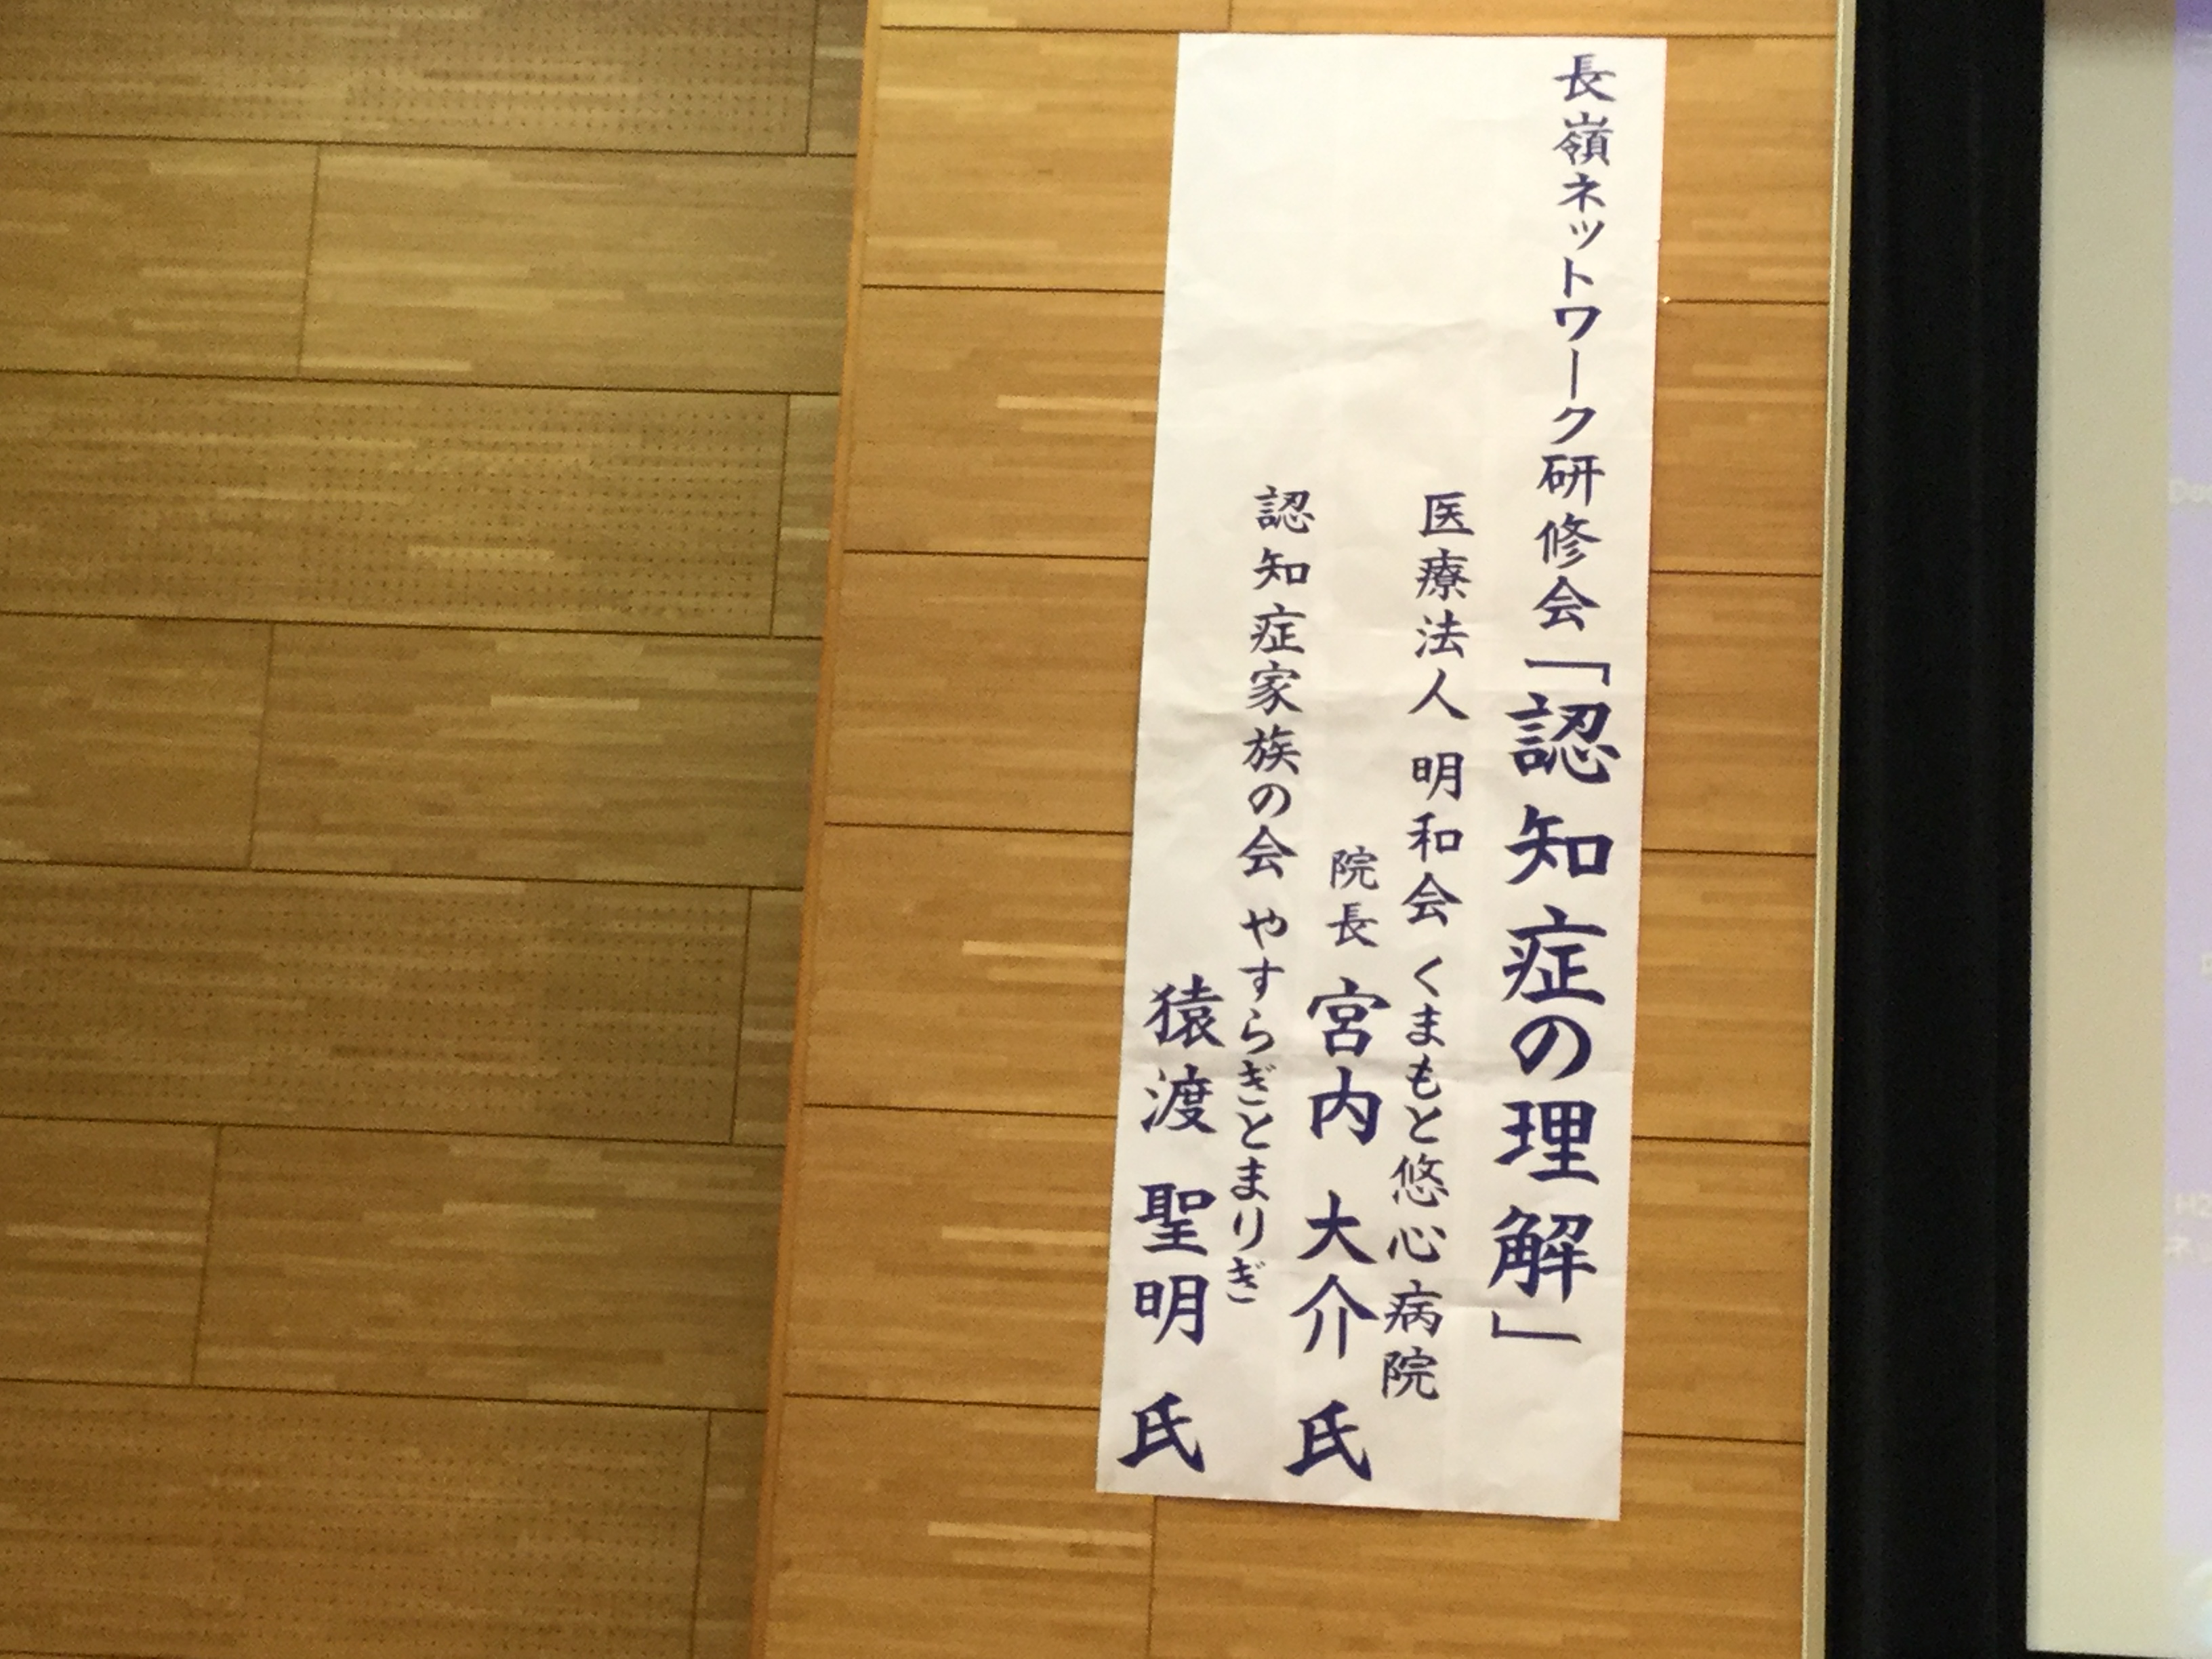 長嶺ネットワーク研修会「認知症の理解」
医療法人 明和会 くまもと悠心病院
院長 宮内 大介 氏
認知症家族の会 やすらぎとまりぎ
猿渡 聖明 氏